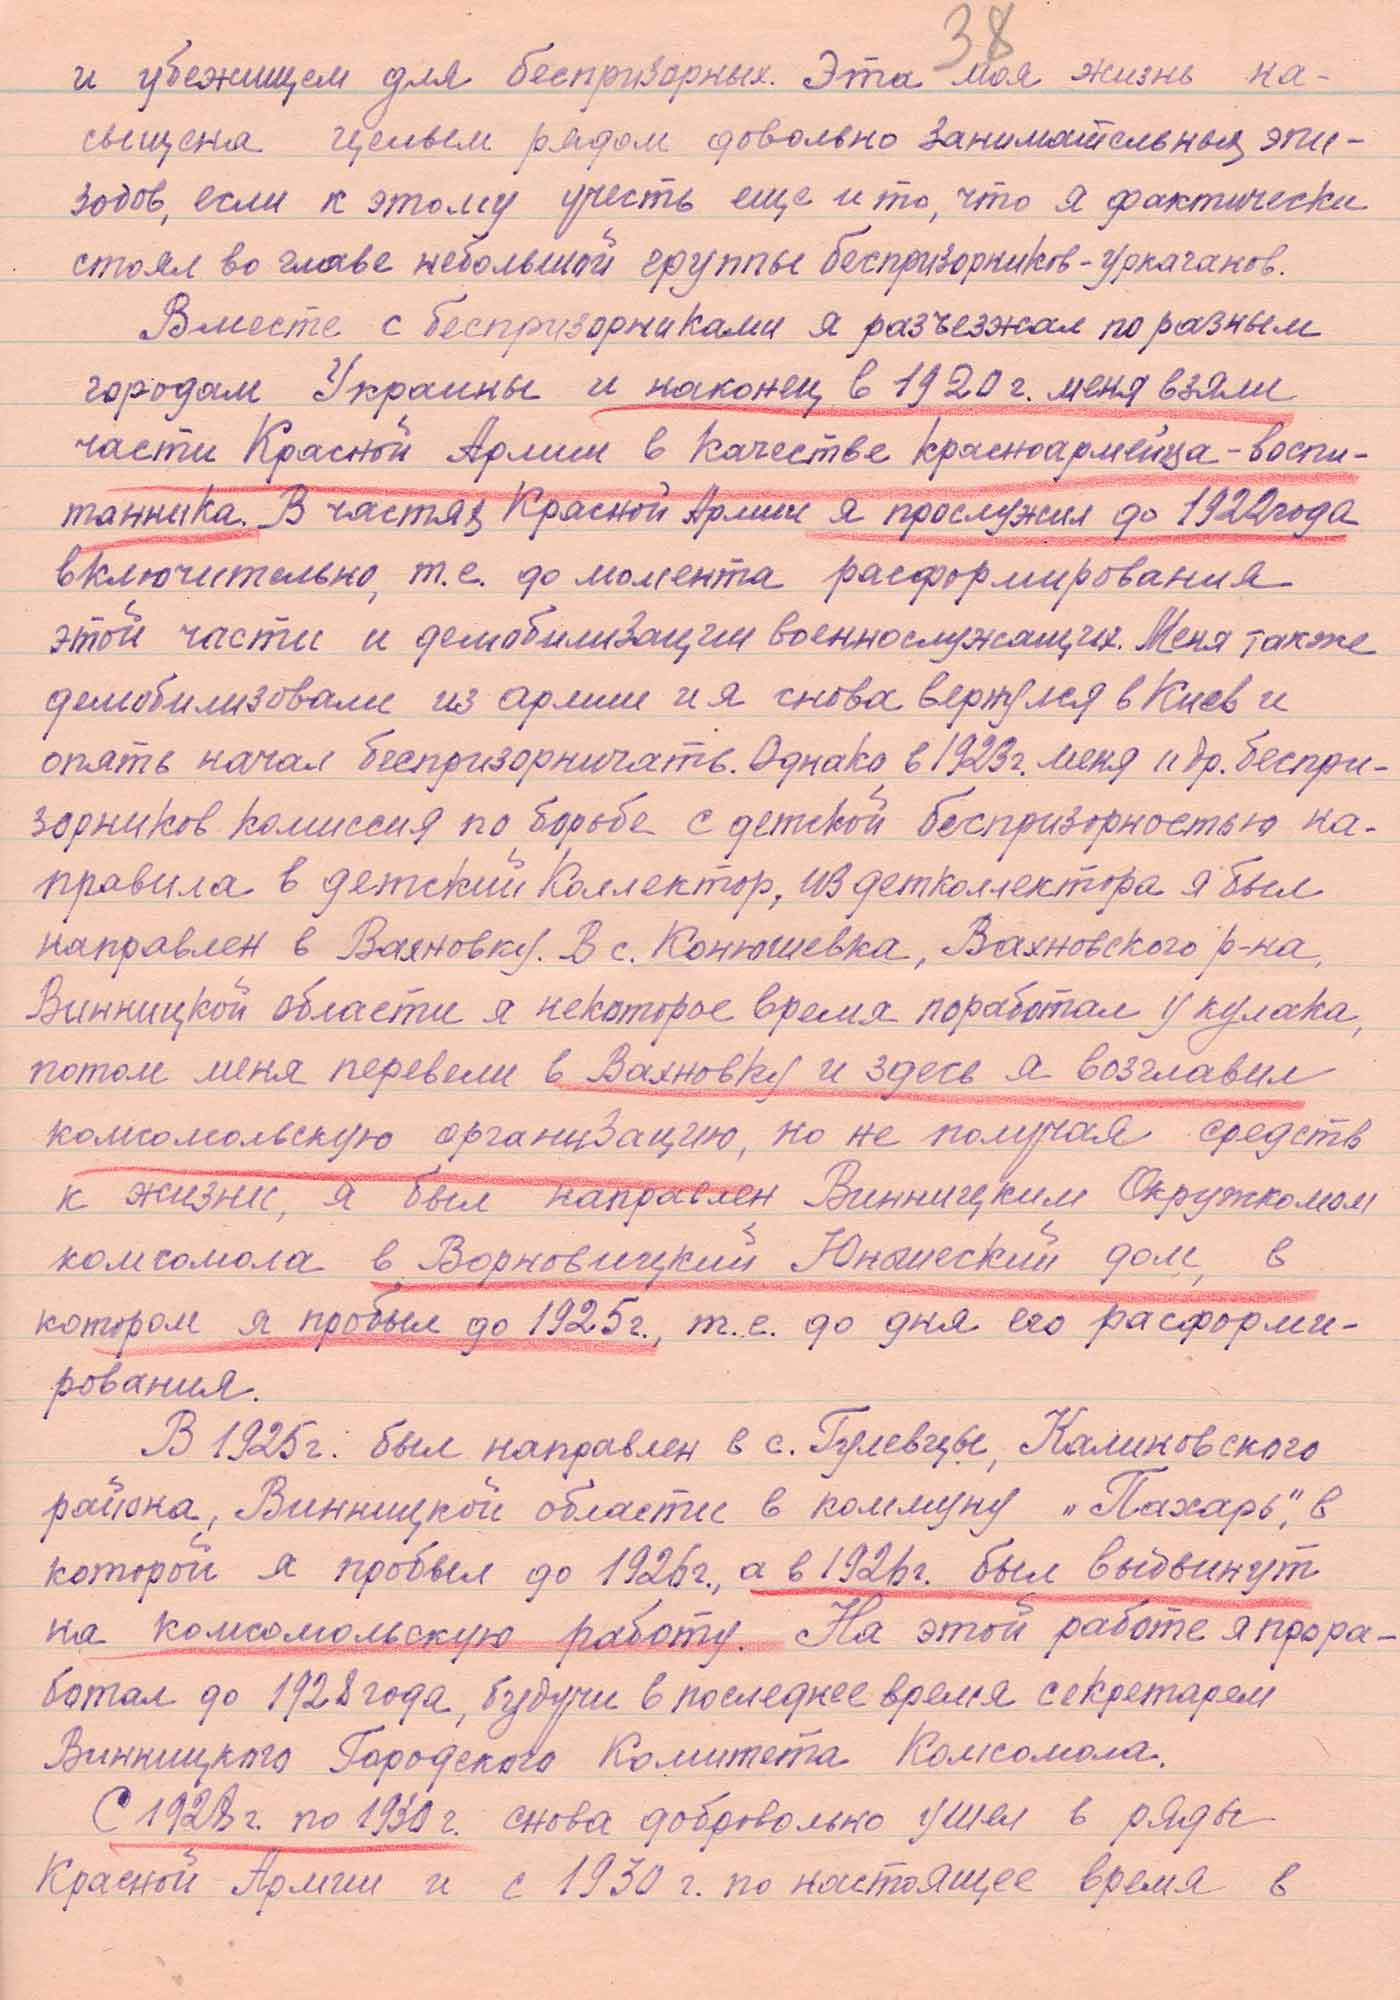 38
и убежищем для беспризорных. Эта моя жизнь на-
сыщена целым рядом довольно занимательных эпи-
зодов, если к этому учесть еще и то, что я фактически
стоял во главе небольшой группы беспризорников-уркаганов.
Вместе с беспризорниками я разъезжал по разным
городам Украины и наконец в 1920 г. меня взяли
части Красной Армии в качестве красноармейца-воспи-
танника. В частях Красной Армии я прослужил до 1922 года
включительно, т.е. до момента расформирования
этой части и демобилизации военнослужащих. Меня также
демобилизовали из армии и я снова вернулся в Киев и
опять начал беспризорничать. Однако в 1923 г. меня и др. беспри-
зорников комиссия по борьбе с детской беспризорностью на-
правила в детский коллектор, из детколлектора я был
направлен в Вахновку. В с. Конюшевка, Вахновского р-на,
Винницкой области я некоторое время поработал у кулака,
потом меня перевели в Вахновку и здесь я возглавил
комсомольскую организацию, но не получая средств
к жизни, я был направлен Винницким Окружкомом
комсомола в Ворновицкий Юнашеский дом, в
котором я пробыл до 1925 г., т.е. до дня его расформи-
рования.
В 1925 г. был направлен в с. Гулевцы, Калиновского
района, Винницкой области в коммуну „Пахарь", в
которой я пробыл до 1926 г., а в 1926 г. был выдвинут
на комсомольскую работу. На этой работе я прора-
ботал до 1928 года, будучи в последнее время секретарем
Винницкого Городского Комитета Комсомола.
С 1928 г. по 1930 г. снова добровольно ушел в ряды
Красной Армии и с 1930 г. по настоящее время в